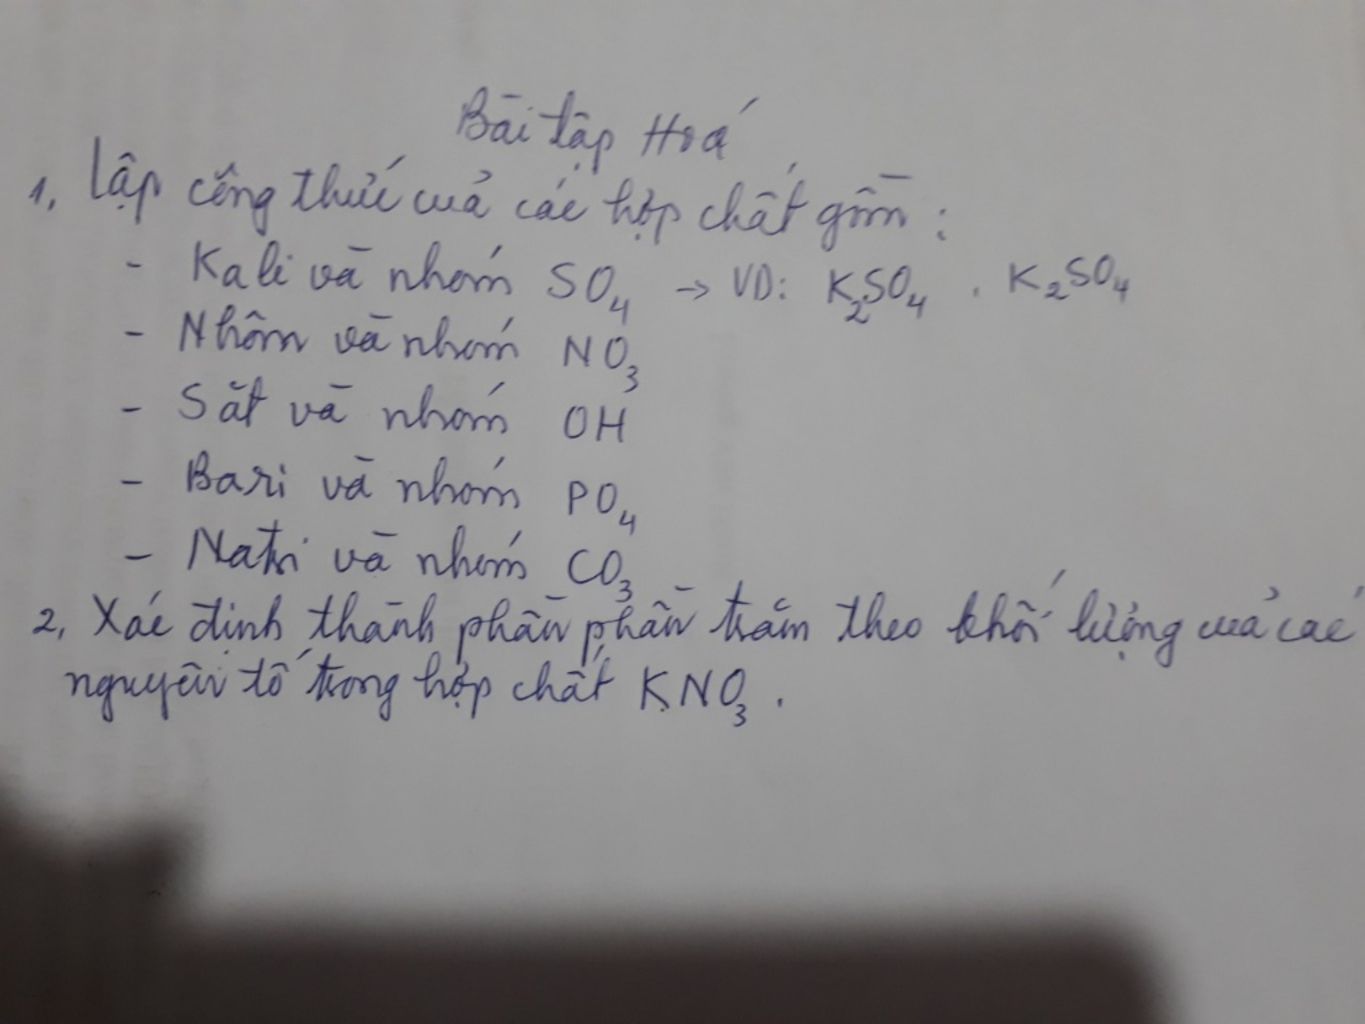 Bài tập Hoá
1, Lập công thức của các hợp chất gồm :
- Kali và nhóm SO₄ → VD: K₂SO₄ . K₂SO₄
- Nhôm và nhóm NO₃
- Sắt và nhóm OH
- Bari và nhóm PO₄
- Natri và nhóm CO₃
2, Xác định thành phần phần trăm theo khối lượng của các
nguyên tố trong hợp chất KNO₃ .